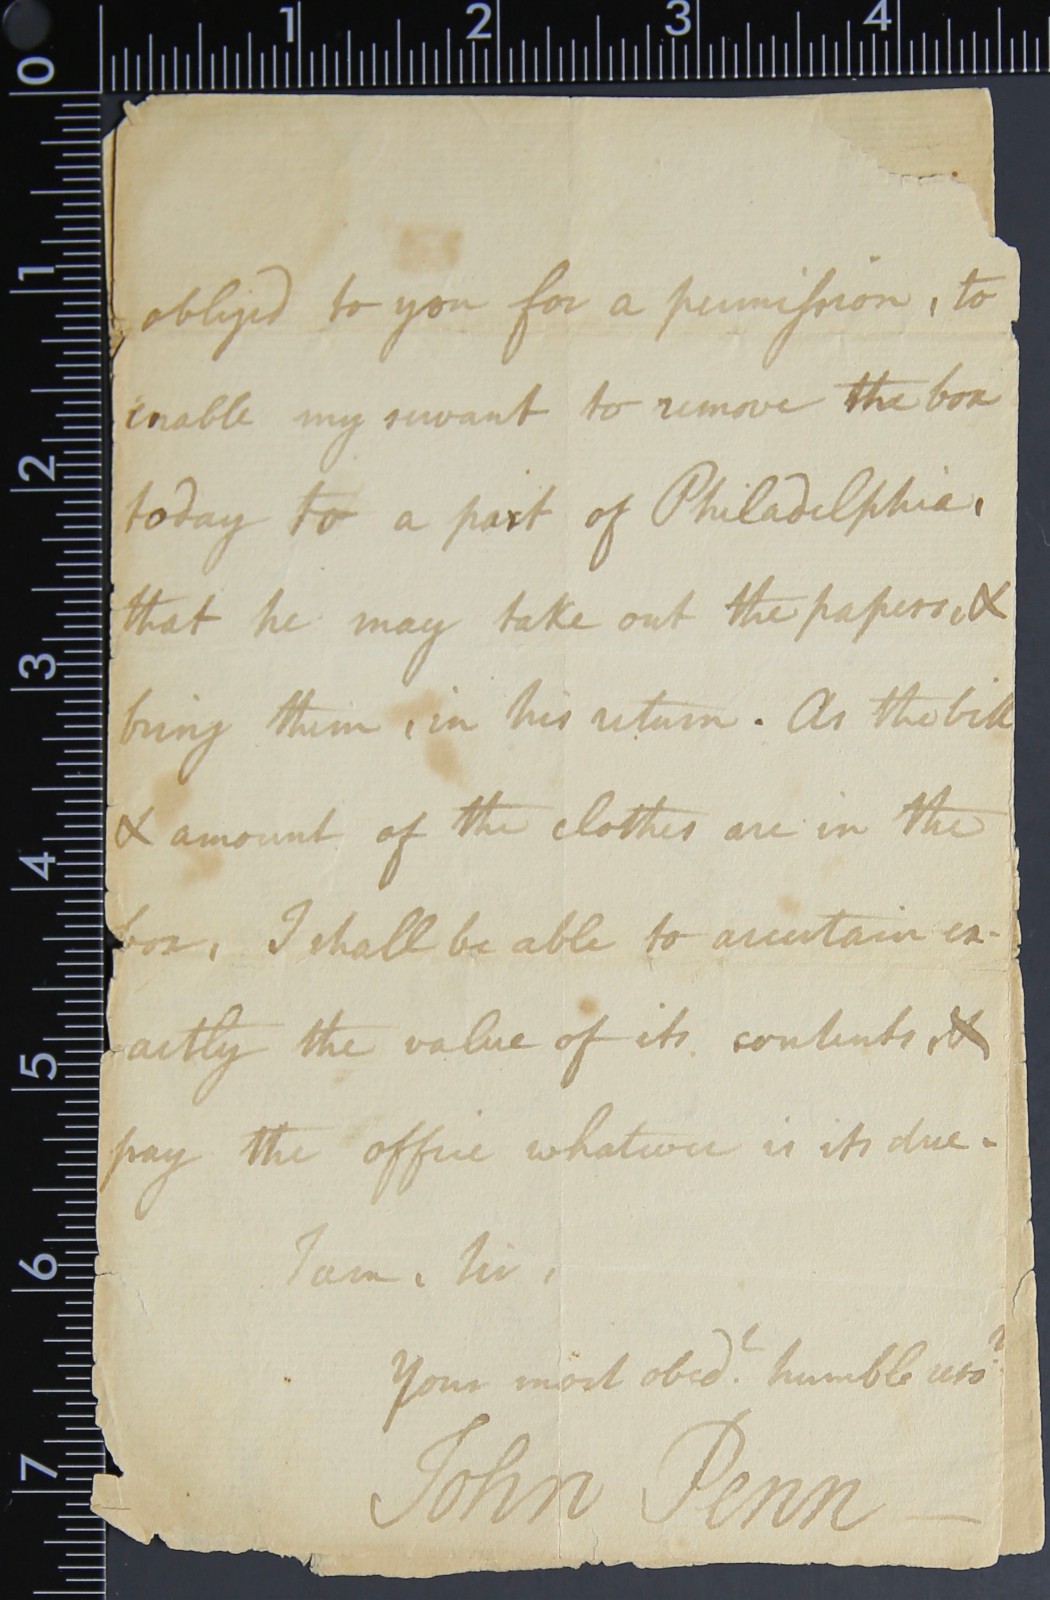 0 1 2 3 4
1
2
3
4
5
6
7
obliged to you for a permission, to
enable my servant to remove the box
today to a part of Philadelphia,
that he may take out the papers, &
bring them, in his return. As the bill
& amount of the clothes are in the
box, I shall be able to ascertain ex-
actly the value of its contents, &
pay the office whatever is its due-
I am, Sir,
Your most obed.t humble ser.t
John Penn